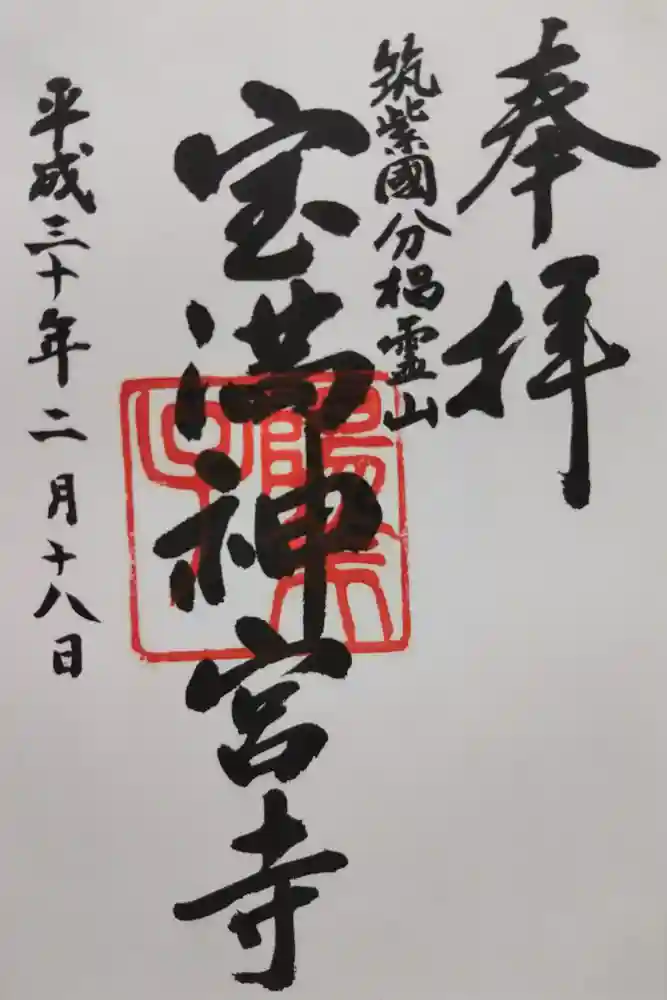 奉拝
筑紫國分椙霊山
宝満神宮寺
平成三十年二月十八日